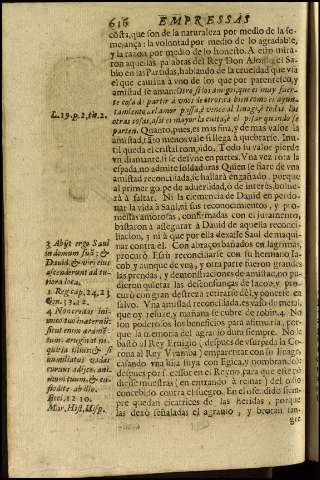 616 EMPRESSAS
costa, que son de la naturaleza por medio de la se-
mejança: la volontad por medio de lo agradable,
y la razon por medio de lo honesto. A esto mira-
ron aquellas palabras del Rey Don Alonso el Sa-
bio en las Partidas, hablando de la crueldad que vsa
el que cautiva à vno de los que por parentesco, y
amistad se aman: Otrosi los amigos, que es muy fuer-
te cosa de partir à vnos de otros: ca bien como el ayun-
tamiento del amor passa, è vence al linage, è todas las
otras cosas, assi es mayor la cuita, è el pesar quando se
parten. Quanto, pues, es mas fina, y de mas valor la
amistad, tãto menos vale si llega à quebrarse. Inu-
til queda el cristal rompido. Todo su valor pierde
vn diamante, si se desvne en partes. Vna vez rota la
espada, no admite soldaduras. Quien se fiare de vna
amistad reconciliada, se hallarà engañado, porque
al primer golpe de adversidad, ò de interès, bolve-
rà à faltar. Ni la clemencia de David en perdo-
nar la vida à Saul, ni sus reconocimientos, y pro-
messas amorosas, confirmadas con el juramento,
bastaron à assegurar à David de aquella reconci-
liacion, 3 ni à que por ella dexasse Saul de maqui-
nar contra èl. Con abraços bañados en lagrimas,
procurò Esau reconciliarse con su hermano Ia-
cob, y aunque de vna, y otra parte fueron grandes
las prendas, y demonstraciones de amistad, no pu-
dieron quietar las desconfianças de Iacob, y pro-
curò con gran destreza retirarse dèl, y ponerse en
salvo. Vna amistad reconciliada, es vaso de metal,
que oy reluze, y mañana se cubre de robin. 4 No
son poderosos los beneficios para afirmarla, por-
que la memoria del agravio dura siempre. No le
bastò al Rey Ervigio (despues de vsurpada la Co-
rona al Rey Vvamba) emparentar con su linage,
casando vna hija suya con Egica, y nombrandole
despues por sucessor en el Reyno, para que este no
diesse muestras (en entrando à reinar) del odio
concebido contra el suegro. En el ofendido siem-
pre quedan cicatrices de las heridas, porque
las dexò señaladas el agravio, y brotan san-
gre
L. 19. p. 2. tit. 2.
3 Abijt ergo Saul
in domum suã: &
David, & viri eius
ascenderunt ad tu-
tiora loca.
1. Reg. cap. 24, 23
Gen. 33. 12.
4 Non credas ini-
mico tuo in æternũ:
sicut enim æramẽ-
tum, æruginat ne-
quitia illius: & si
humiliatus vadat
curvus adijce ani-
mum tuum, & cu-
stodite ab illo.
Eccl. 12. 10.
Mar. Hist. Hisp.